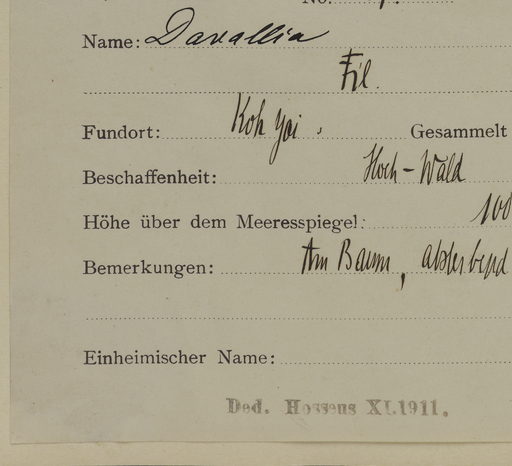 No.
Name: Davallia
Fil.
Fundort: Koh Yai, Gesammelt
Beschaffenheit: Hoch-Wald
Höhe über dem Meeresspiegel: 100
Bemerkungen: Am Baum, absterbend
Einheimischer Name:
Ded. Hosseus XI.1911.